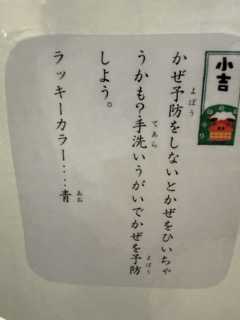 小吉
かぜ予防をしないとかぜをひいちゃ
うかも?手洗いうがいでかぜを予防
しよう。
ラッキーカラー‥‥青